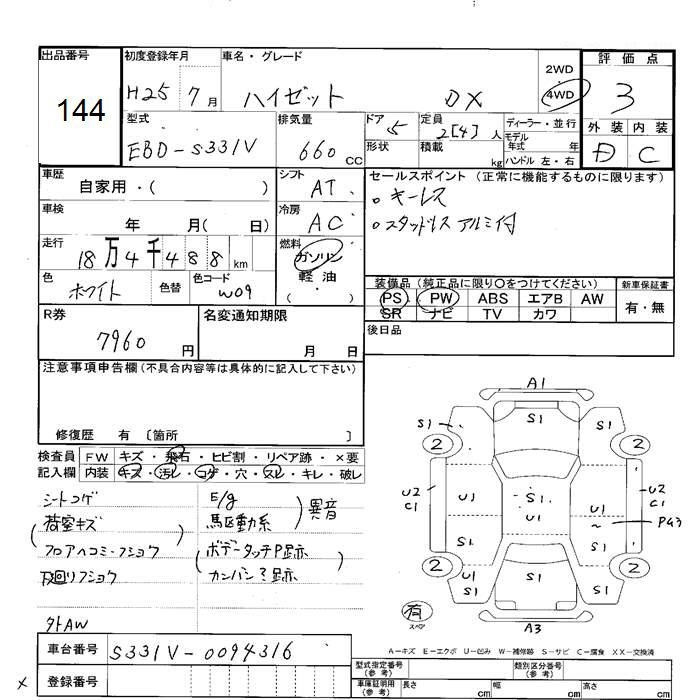 出品番号
144
初度登録年月
H25 7月
車名・グレード
ハイゼット DX
2WD
4WD
評価点
3
型式
EBD-S331V
排気量
660 CC
ドア 5
形状
定員 2[4] 人
積載 kg
ディーラー・並行
モデル年式 年
ハンドル 左・右
外装 内装
D C
車歴
自家用・( )
シフト AT
セールスポイント (正常に機能するものに限ります)
。キーレス
。スタッドレスアルミ付
車検
年 月( 日)
冷房 AC
走行
18万4千488km
燃料
ガソリン
軽油
( )
色
ホワイト
色替
色コード
W09
装備品 (純正品に限り〇をつけてください)
PS PW ABS エアB AW
SR ナビ TV カワ
新車保証書
有・無
R券
7960円
名変通知期限
月 日
後日品
注意事項申告欄(不具合内容等は具体的に記入して下さい)
修復歴 有 〔箇所 〕
検査員記入欄
FW キズ・飛石・ヒビ割・リペア跡・×要
内装 キズ・汚レ・コゲ・穴・スレ・キレ・破レ
シートコゲ
荷室キズ
フロアヘコミ・フショク
下廻リフショク
外AW
E/g
馬区動系
異音
ボデータッチP跡
カンバンミ跡
A1
S1
S1 S1
2 2
U2
C1
U1 S1
U1
U1
~
U2
C1
PG3
S1 S1
2 2
U1
S1
S1 S1
有
スペア
A3
A-キズ E-エクボ U-凹み W-補修跡 S-サビ C-腐食 XX-交換済
車台番号 S331V-0094316
× 登録番号
型式指定番号
(参考)
類別区分番号
(参考)
車庫証明用
(参考)
長さ cm
幅 cm
高さ cm